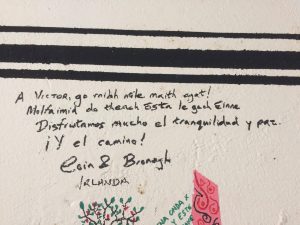 A VICTOR, go raibh míle maith agat!
Molfaimid do theach Esta le gach Éinne
Disfrutamos mucho el tranquilidad y paz.
¡Y el camino!
Eoin & Bronagh
IRLANDA
UNA
Y ESTO